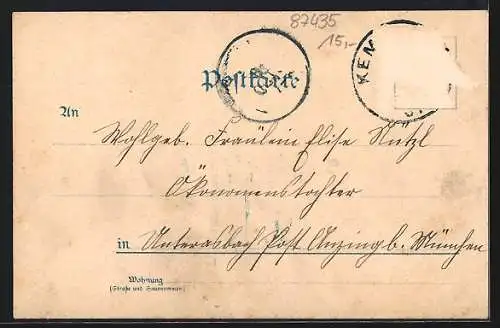 87435
15,-
Postkarte
KEM
An
Wohlgeb. Fräulein Elise Nützl
Ökonomenstochter
in Unterasbach Post Anzing b. München
Wohnung
(Straße und Hausnummer)